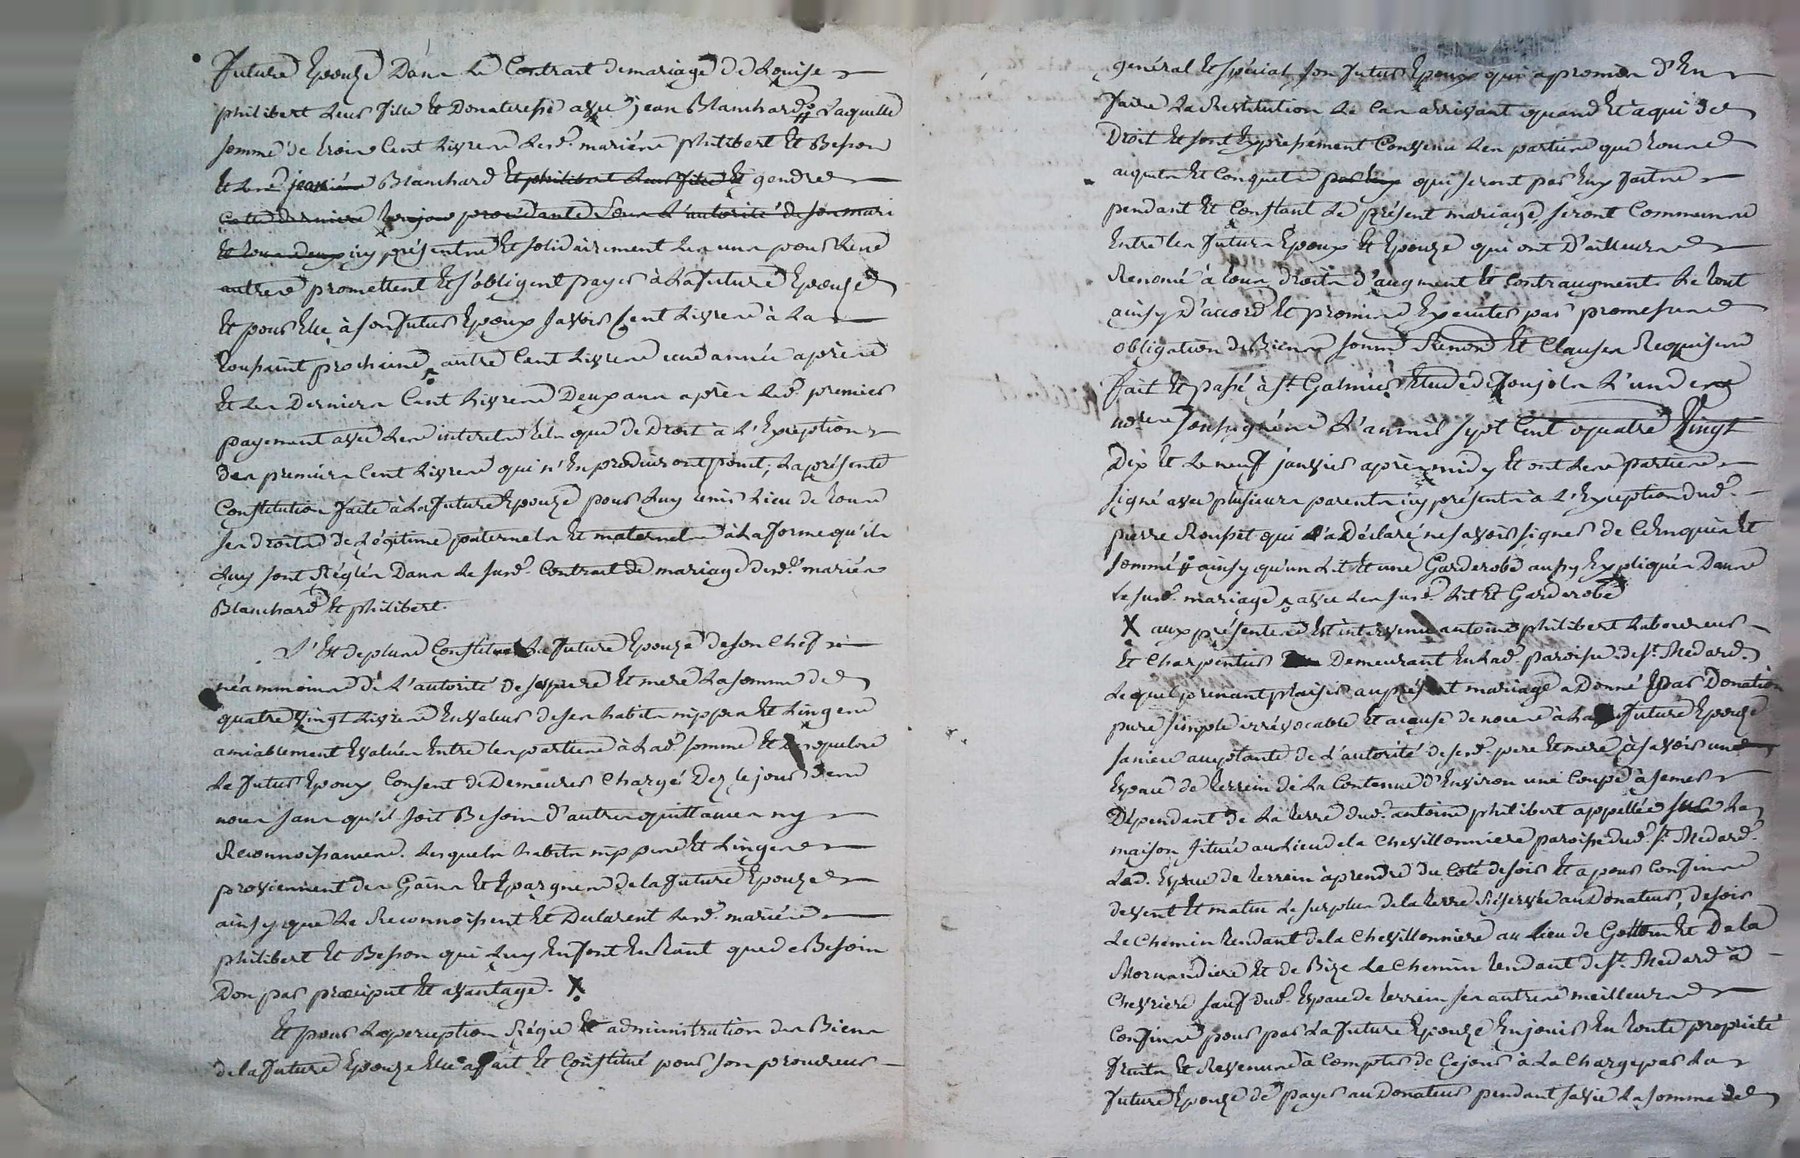 future Epouze Dans Le Contrat de mariage de Louise
philibert Leur fille Et Donateresse avec jean Blanchard # Laquelle
somme de trois Cent Livres Lesd. mariés philibert Et Besson
Et Led. jean Blanchard Et philibert Leur fille Et gendre
cette derniere procedante Sous L'autorité de son mari
Et tous deux icy présents Et solidairement Les uns pour Les
autres promettent Et s'obligent payer à La future Epouze
Et pour Elle à son futur Epoux savoir Cent Livres à La
toussaint prochaine, autre Cent Livres une année après
Et Les Derniers Cent Livres Deux ans après Led. premier
payement avec Les interets tels que de Droit à L'Exception
des premiers Cent Livres qui n'En produiront point; La présente
Constitution faite à La future Epouze pour Luy tenir Lieu de tous
ses droits de Légitime paternels Et maternels à La forme qu'ils
Luy sont Réglés Dans Le susd. Contrat de mariage desd. mariés
Blanchard Et philibert.
S'Est de plus Constitué La future Epouze de son Chef
néammoins de L'autorité de ses pere Et mere La somme de
quatre vingt Livres En valeur de ses habits nippes Et Linges
amiablement Evalués Entre Les parties à Lad. somme Et Desquels
Le futur Epoux Consent de Demeurer Chargé Dez le jour des
noces sans qu'il soit Besoin d'autres quittances ny
Reconnoissances. Lesquels habits nippes Et Linges
proviennent des Gains Et Epargnes de la future Epouze
ainsy que Le Reconnoissent Et Declarent Lesd. mariés
philibert Et Besson qui Luy En font En tant que de Besoin
Don par præciput Et avantage. X
Et pour La perception Régie Et administration des Biens
de la future Epouze Elle a fait Et Constitué pour son procureur
général Et spécial son futur Epoux qui a promis D'En
faire La Restitution Le Cas arrivant quand Et à qui de
Droit Et sont Expressément Convenu Les parties que tous
aquets Et Conquets par Eux qui seront par Eux faits
pendant Et Constant Le présent mariage seront Communs
Entre Les futurs Epoux Et Epouze qui ont D'ailleurs
Renoncé à tous Droits d'augment Et Contraugment. Le tout
ainsy D'accord Et promis Executer par promesses
obligation de Biens soum. Renonc. Et Clauses Requises
fait Et passé à St. Galmier Etude de Joujols L'un des
nores soussignés L'an mil sept Cent quatre Vingt
Dix Et Le neuf janvier après midy Et ont Les parties
signé avec plusieurs parents icy présents à L'Exception dud.
pierre Rousset qui a Déclaré ne savoir signer de Ce Enquis Et
sommé # ainsy qu'un Lit Et une Garderobe aussy Expliqués Dans
Le susd. mariage avec Les susd. Lit Et Garderobe
X aux présentes Est intervenu antoine philibert Laboureur
Et Charpentier Demeurant En Lad. paroisse de St. Medard.
Lequel prenant plaisir au présent mariage a Donné par Donation
pure simple irrévocable Et à cause de noces à La future Epouze
sa niece acceptante de L'autorité de sesd. pere Et mere à savoir un
Espace de terrein de La Contenue d'Environ une Coupe à semer
Dépendant de La terre dud. antoine philibert appellée La
maison située au Lieu de la Chevillonniere paroisse dud. St. Medard.
Led. Espace de terrein à prendre du Coté de soir Et a pour Confins
de vent Et matin Le surplus de la terre Réservée au Donateur, de soir
Le Chemin tendant de la Chevillonniere au Lieu de Gotton Et De la
Mornandiere Et de Bize Le Chemin tendant de St. Medard à
Chevriere sauf dud. Espace de terrein ses autres meilleurs
Confins pour par La future Epouze En jouir En toute propriété
fruits Et Revenus à Compter de Ce jour à La Charge par La
future Epouze de payer au Donateur pendant sa vie La somme de